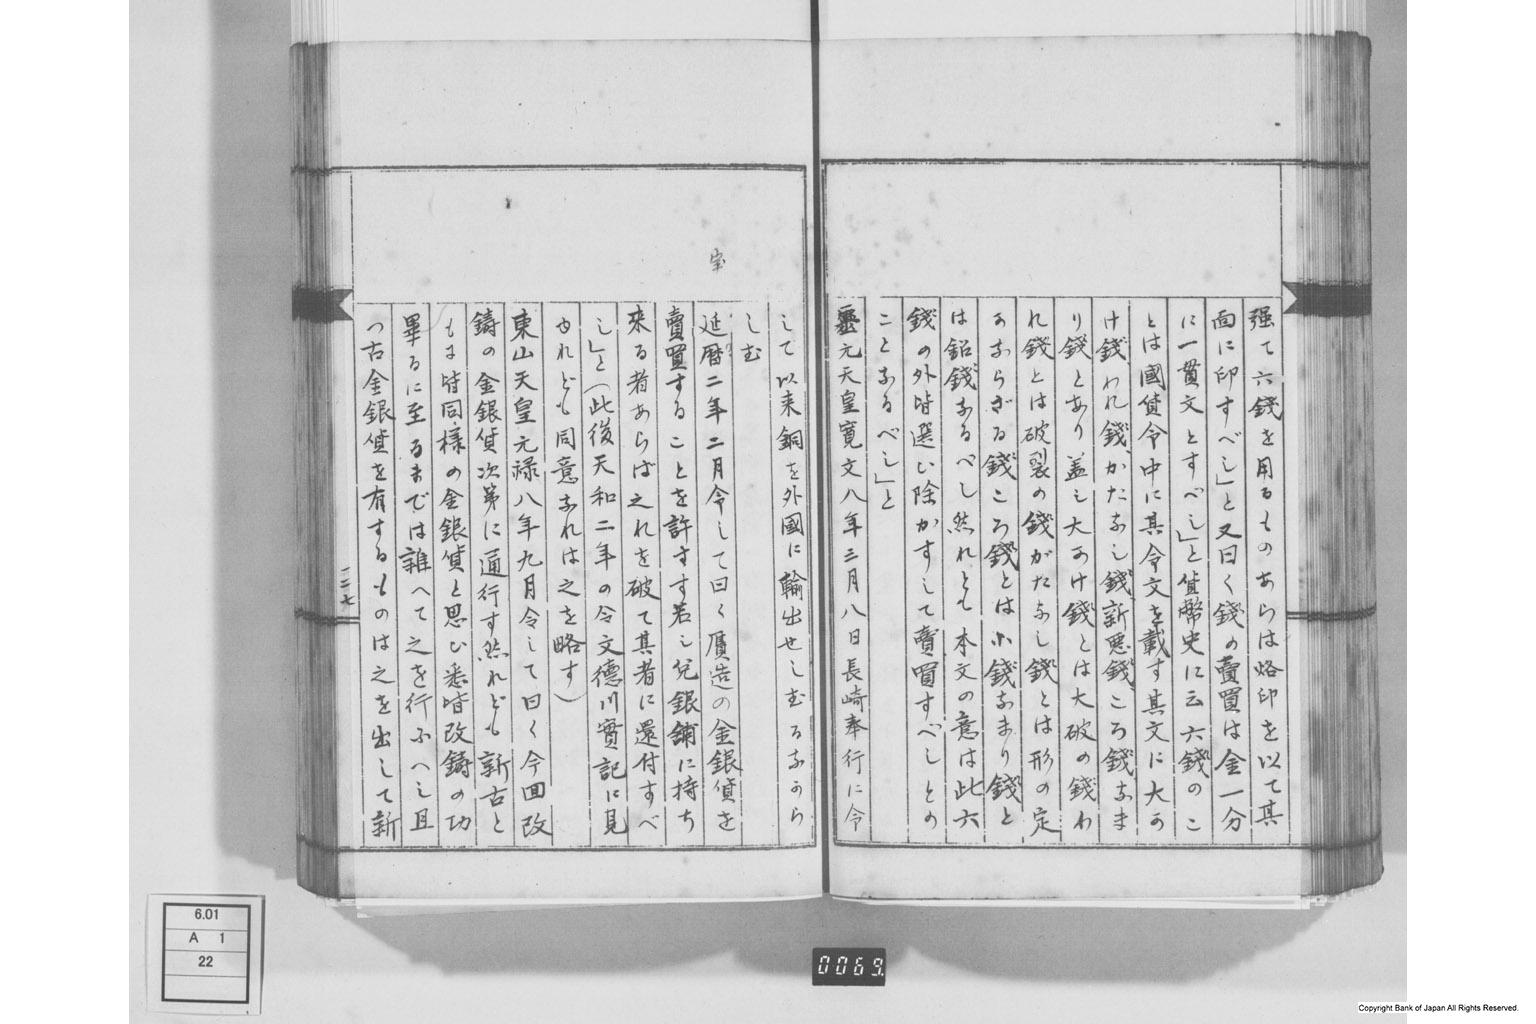 强て六錢を用るものあらは烙印を以て其
面に印すべし」と又曰く錢の賣買は金一分
に一貫文とすべし」と貨幣史に云六錢のこ
とは國貨令中に其令文を載す其文に大か
け錢われ錢かたなし錢新惡錢ころ錢なま
り錢とあり盖し大かけ錢とは大破の錢わ
れ錢とは破裂の錢がたなし錢とは形の定
かならざる錢ころ錢とは小錢なまり錢と
は鉛錢なるべし然れとも本文の意は此六
錢の外皆選ひ除かすして賣買すべしとの
ことなるべし」と
靈元天皇寛文八年三月八日長崎奉行に令
して以来銅を外國に輸出せしむるなから
しむ
室
延暦二年二月令して曰く贋造の金銀貨を
賣買することを許すす若し兌銀舗に持ち
來る者あらば之れを破て其者に還付すべ
し」と(此後天和二年の令文德川實記に見
ゆれども同意なれは之を略す)
東山天皇元禄八年九月令して曰く今回改
鑄の金銀貨次第に通行す然れども新古と
もに皆同樣の金銀貨と思ひ悉皆改鑄の功
畢るに至るまでは雜へて之を行ふへし且
つ古金銀貨を有するものは之を出して新
一二七
6.01
A 1
22
0069
Copyright Bank of Japan All Rights Reserved.